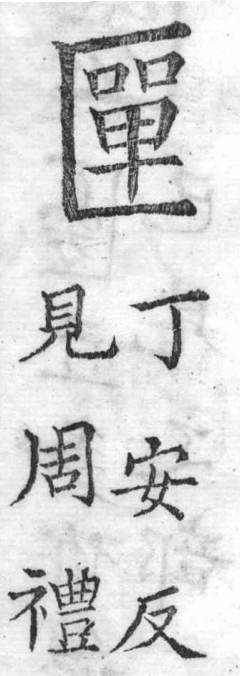 匰
丁安反
見周禮